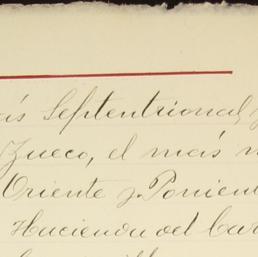 ás Septentrional, y
Zueco, el más n
Oriente y Ponien
Hacienda del Car